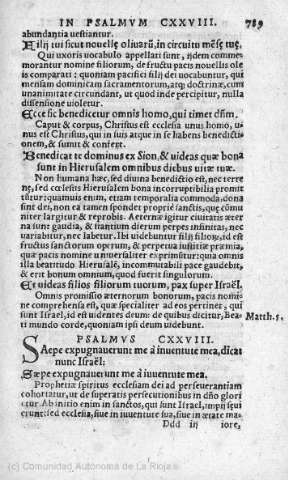 IN PSALMVM CXXVIII. 789
abundantia uestiantur.
Filij tui sicut nouellę oliuarũ, in circuitu mẽsę tuę.
Qui uxoris uocabulo appellati sunt, ijdem comme-
morantur nomine filiorum, de fructu pacis nouellis ole
is comparati: quoniam pacifici filij dei uocabuntur, qui
mensam dominicam sacramentorum, atq; doctrinæ, cum
unanimitate circundant, ut quod inde percipitur, nulla
dissensione uioletur.
Ecce sic benedicetur omnis homo, qui timet dñm.
Caput & corpus, Christus est ecclesia unus homo, u-
nus est Christus, qui in suis atque in se habens benedictio
onem, & sumit & confert.
Benedicat te dominus ex Sion, & uideas quæ bona
sunt in Hierusalem omnibus diebus uitæ tuæ.
Non humana hæc, sed diuina benedictio est, nec terre
nę, sed cœlestis Hierusalem bona incorruptibilia promit
tũtur: quamuis enim, etiam temporalia commoda, dona
sint dei, non ea tamen spondet proprie sanctis, quæ cõmu
niter largitur & reprobis. Aeternæ igitur ciuitatis æter
na sunt gaudia, & stantium dierum perpes infinitas, nec
uariabitur, nec labetur. Ibi uidebuntur filij filiorũ, id est
fructus sanctorum operum, & perpetua iustitiæ præmia,
quæ pacis nomine uniuersaliter exprimũtur: quia omnis
illa beatitudo Hierusalẽ, incommutabili pace gaudebit,
& erit bonum omnium, quod fuerit singulorum.
Et uideas filios filiorum tuorum, pax super Israël.
Omnis promissio æternorum bonorum, pacis nomi-
ne comprehensa est, quæ specialiter ad eos pertinet, qui
sunt Israël, id est uidentes deum: de quibus dicitur, Bea-
ti mundo corde, quoniam ipsi deum uidebunt.
Matth. 5.
PSALMVS CXXVIII.
Saepe expugnauerunt me à iuuentute mea, dicat
nunc Israël:
Sæpe expugnauerunt me à iuuentute mea.
Prophetiæ spiritus ecclesiam dei ad perseuerantiam
cohortatur, ut de superatis persecutionibus in dño glorie
tur. Ab initio enim in sanctos, qui sunt Israel, impij sęui
erunt: sed ecclesia, siue in iuuentute sua, siue in ætate ma-
Ddd in iore,
(c) Comunidad Autónoma de La Rioja